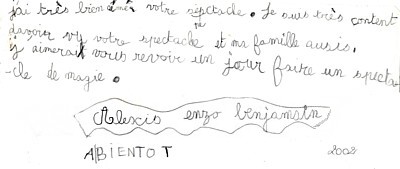 j'ai très bien aimé votre spectacle. Je suis très content
davoir vu votre spectacle et ma famille ausis.
j'aimerait vous revoir un jour faire un specta-
-cle de magie.
Alexis enzo benjamsin
ABIENTOT
2003